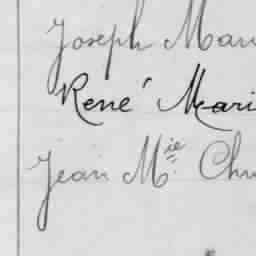 Joseph Mari
René Mari
Jean M.ie Chr